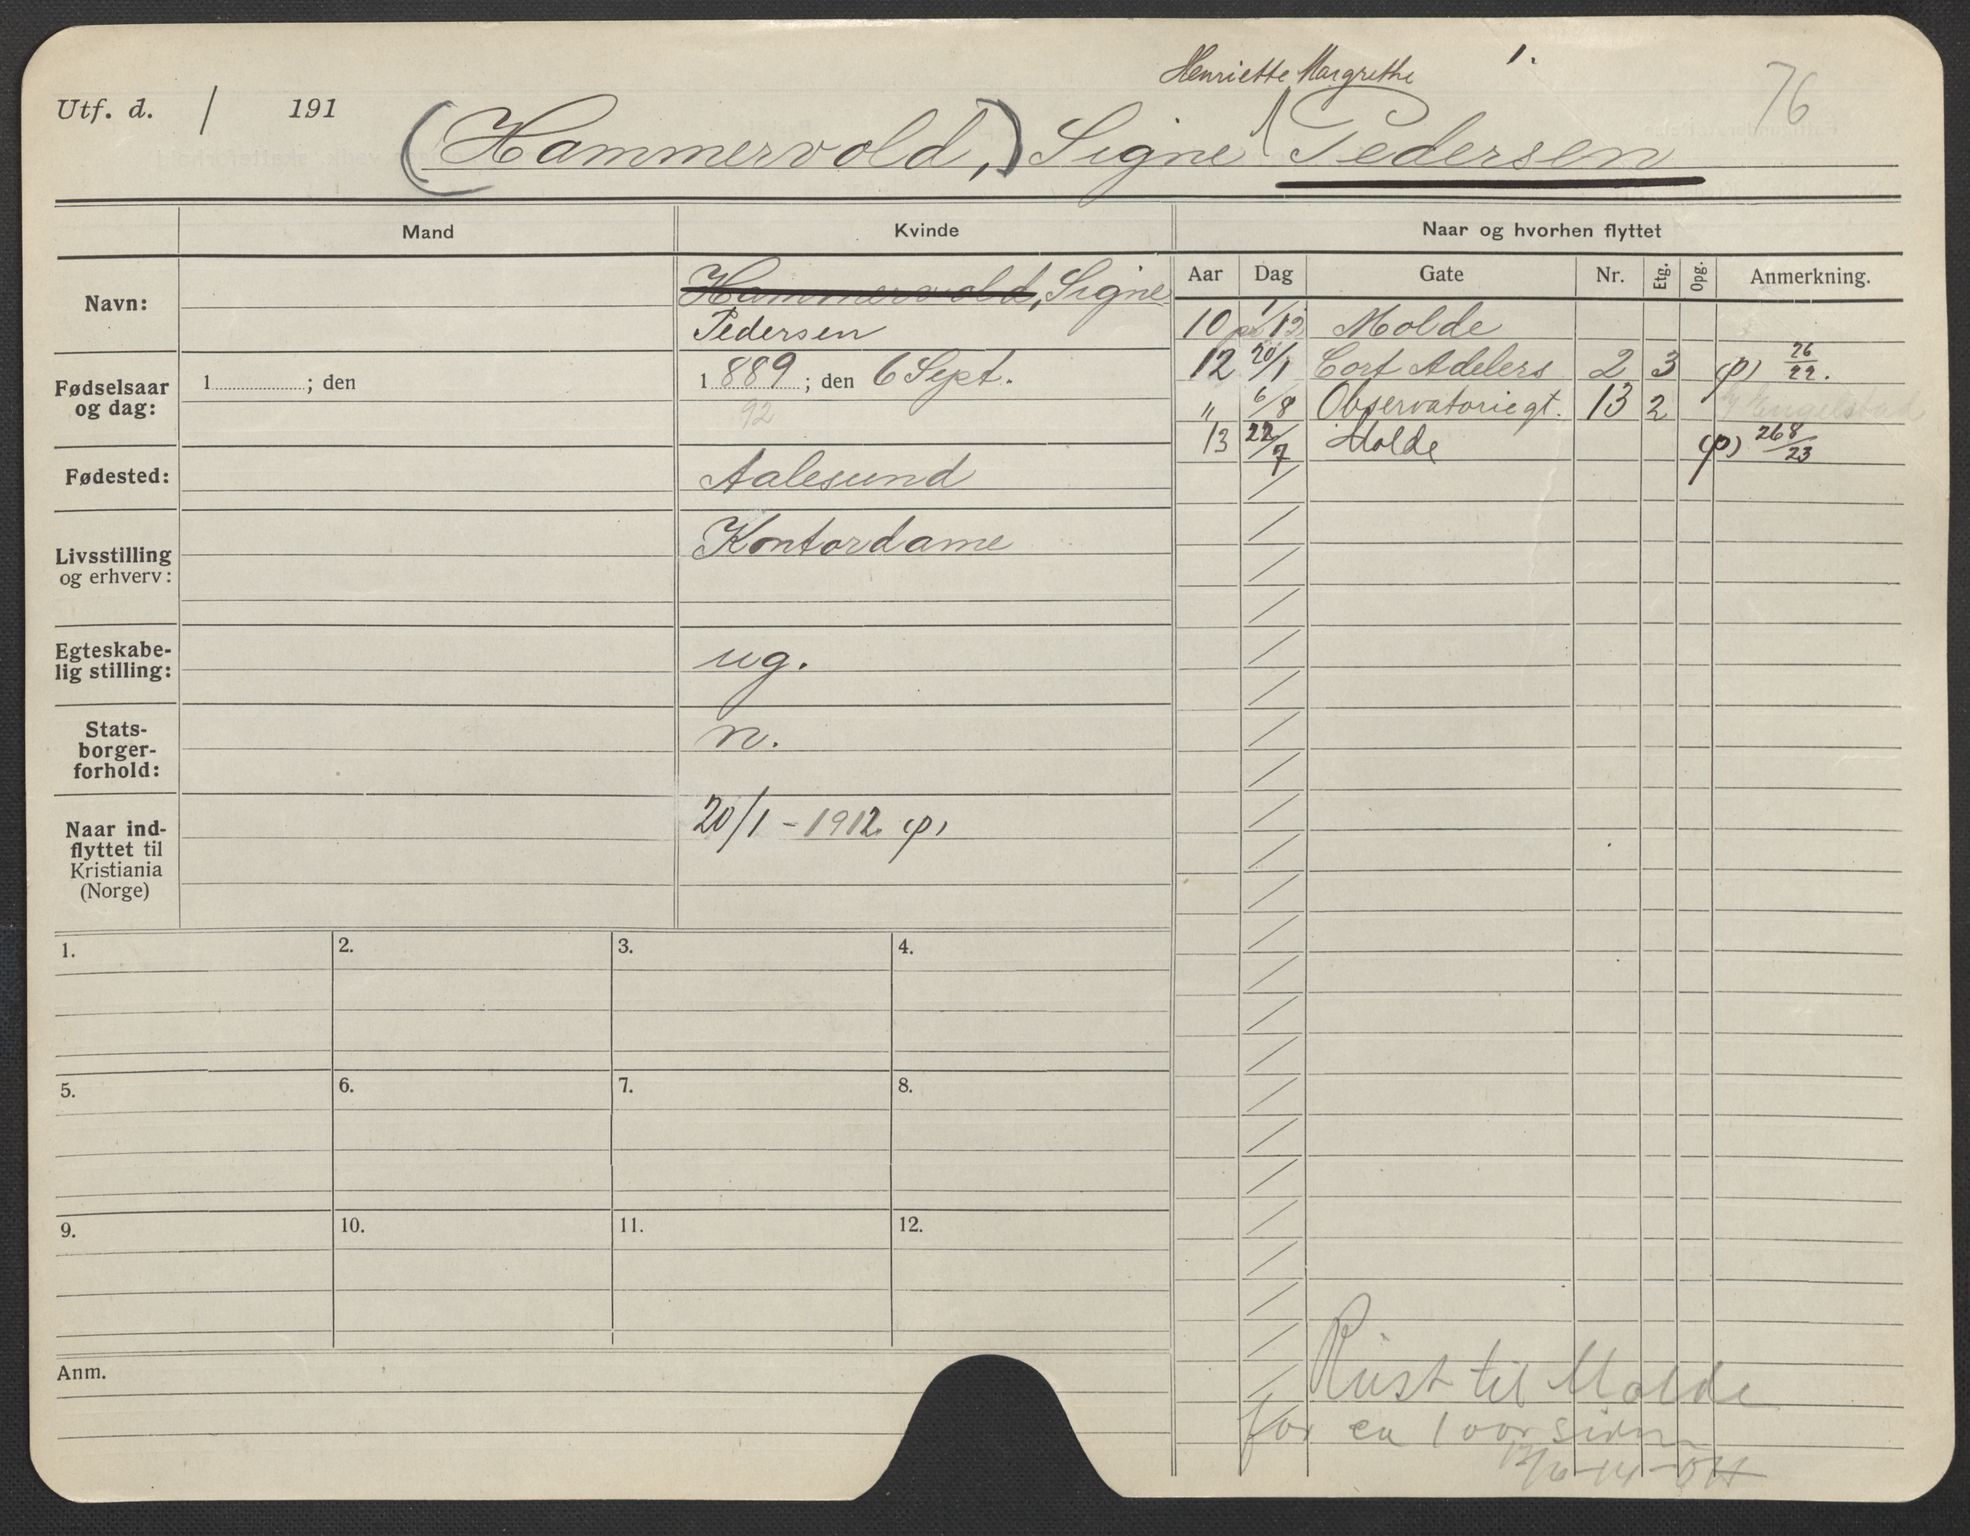 Henriette Margrethe 1.
76
Utf. d. / 191
(Hammervold,) Signe Pedersen
Mand Kvinde Naar og hvorhen flyttet
Aar Dag Gate Nr. Etg. Opg. Anmerkning.
Navn: Hammervold, Signe
Pedersen
Fødselsaar og dag: 1 ; den 1 889 ; den 6 Sept.
92
Fødested: Aalesund
Livsstilling og erhverv: Kontordame
Egteskabe-
lig stilling: ug.
Stats-
borger-
forhold: n.
Naar ind-
flyttet til
Kristiania
(Norge) 20/1 - 1912 (p)
10 1/12 Molde
12 20/1 Cort Adelers 2 3 (p) 26/22.
" 6/8 Observatoriegt. 13 2 Engelstad
13 22/7 Molde (p) 268/23
1. 2. 3. 4.
5. 6. 7. 8.
9. 10. 11. 12.
Anm.
til Molde
for ca 1 aar siden